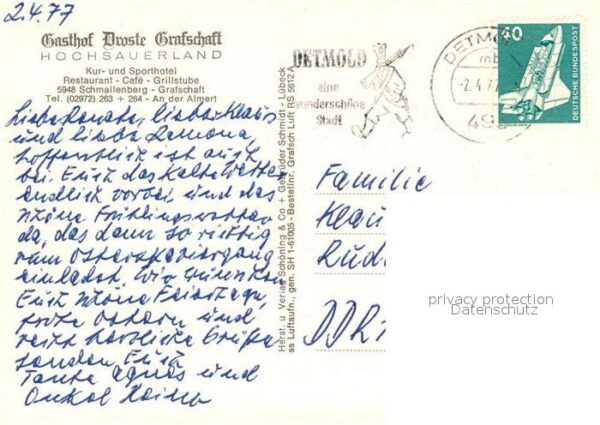 2.4.77
Gasthof Droste Grafschaft
HOCHSAUERLAND
Kur- und Sporthotel
Restaurant - Café - Grillstube
5948 Schmallenberg - Grafschaft
Tel. (02972) 263 + 264 - An der Almert
Liebe Renate, lieber Klaus
und liebe Ramona,
hoffentlich ist auch
bei Euch das kalte Wetter
endlich vorbei, und das
schöne Frühlingswetter
da, das dann so richtig
zum Osterspaziergang
einladet. Wir wünschen
Euch schöne Feiertage,
frohe Ostern und
recht herzliche Grüße
senden Euch
Tante Agnes und
Onkel Heinz
Herst. u. Verlag Schöning & Co + Gebrüder Schmidt - Lübeck
ss Luftaufn., gen. SH 1-61005 - Bestellnr. Grafsch Luft RS 5612 A
DETMOLD
eine
wunderschöne
Stadt
DETMO
mb
-2.4.77
493
40
DEUTSCHE BUNDESPOST
Familie
Klau
Rud
DDR
privacy protection
Datenschutz